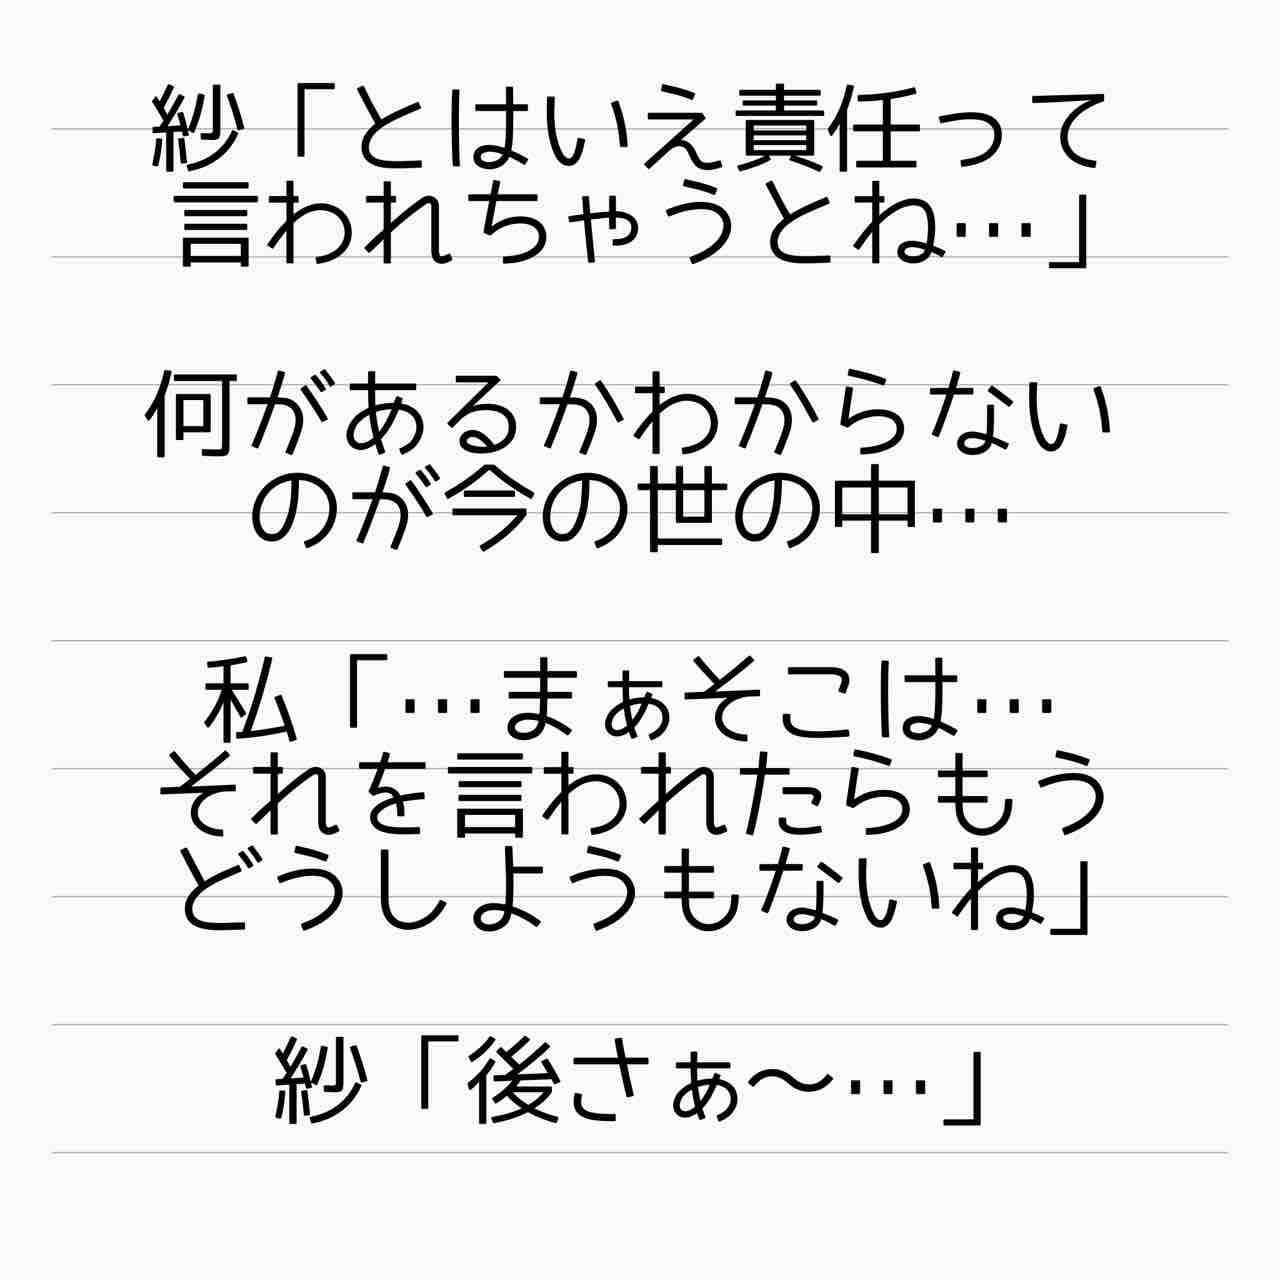 紗「とはいえ責任って
言われちゃうとね…」
何があるかわからない
のが今の世の中…
私「…まぁそこは…
それを言われたらもう
どうしようもないね」
紗「後さぁ～…」